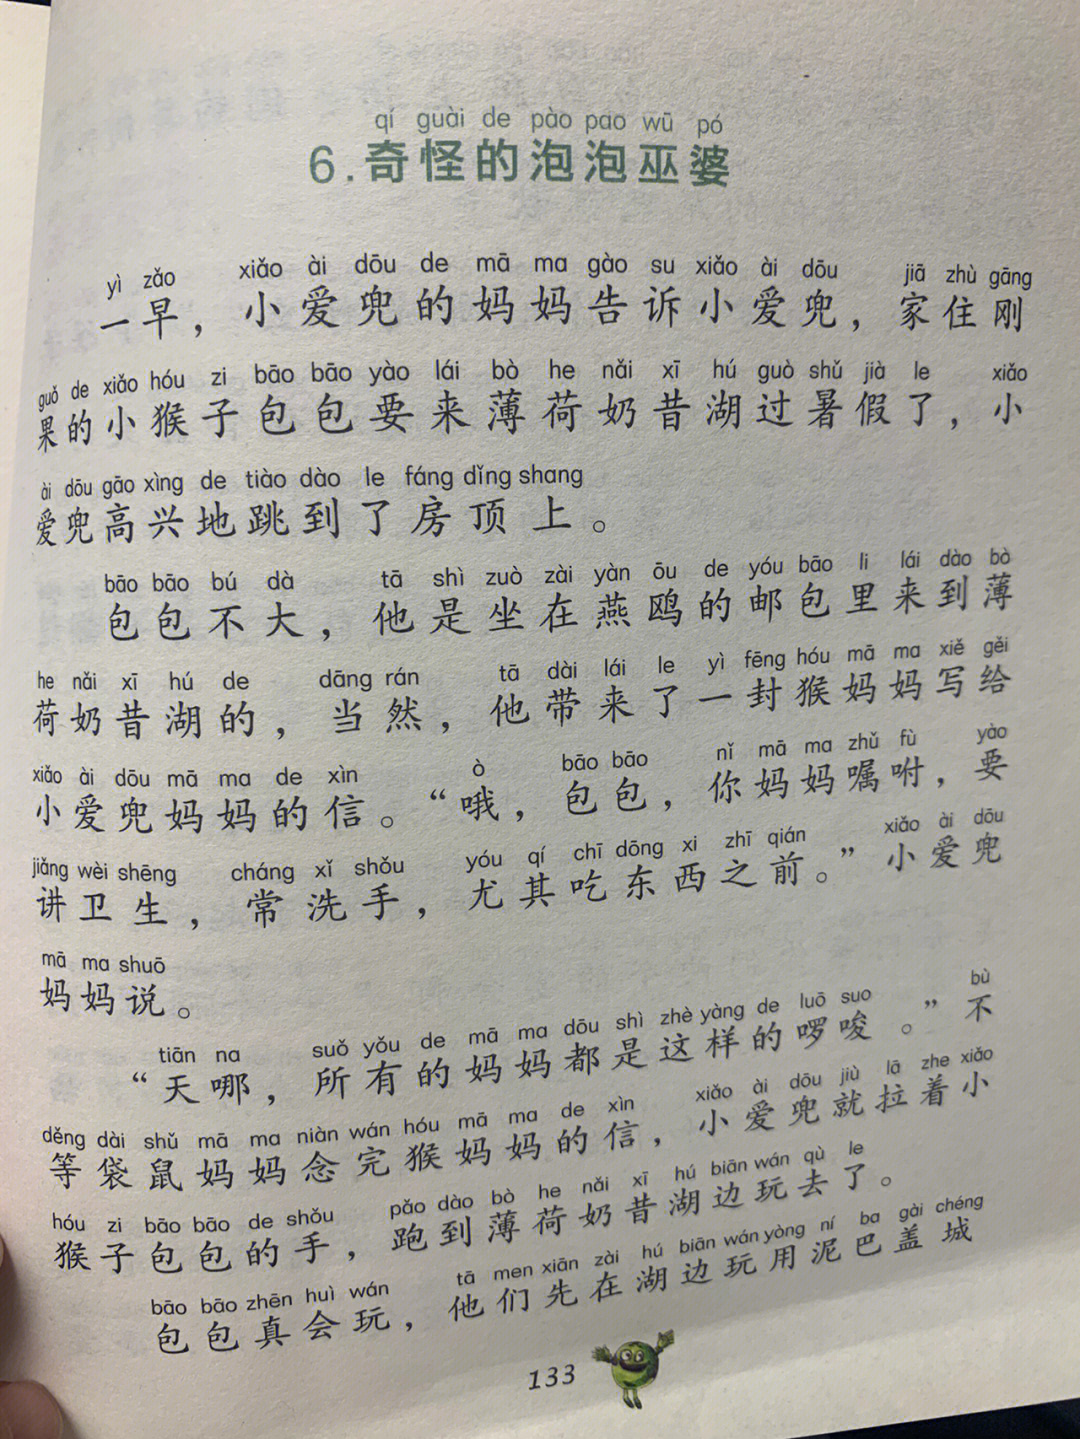 qí guài de pào pao wū pó
6.奇怪的泡泡巫婆
yì zǎo xiǎo ài dōu de mā ma gào su xiǎo ài dōu jiā zhù gāng
一早，小爱兜的妈妈告诉小爱兜，家住刚
guǒ de xiǎo hóu zi bāo bāo yào lái bò he nǎi xī hú guò shǔ jià le xiǎo
果的小猴子包包要来薄荷奶昔湖过暑假了，小
ài dōu gāo xìng de tiào dào le fáng dǐng shang
爱兜高兴地跳到了房顶上。
bāo bāo bú dà tā shì zuò zài yàn ōu de yóu bāo li lái dào bò
包包不大，他是坐在燕鸥的邮包里来到薄
he nǎi xī hú de dāng rán tā dài lái le yì fēng hóu mā ma xiě gěi
荷奶昔湖的，当然，他带来了一封猴妈妈写给
xiǎo ài dōu mā ma de xìn ò bāo bāo nǐ mā ma zhǔ fù yào
小爱兜妈妈的信。“哦，包包，你妈妈嘱咐，要
jiǎng wèi shēng cháng xǐ shǒu yóu qí chī dōng xi zhī qián xiǎo ài dōu
讲卫生，常洗手，尤其吃东西之前。”小爱兜
mā ma shuō
妈妈说。
tiān na suǒ yǒu de mā ma dōu shì zhè yàng de luō suo bù
“天哪，所有的妈妈都是这样的啰唆。”不
děng dài shǔ mā ma niàn wán hóu mā ma de xìn xiǎo ài dōu jiù lā zhe xiǎo
等袋鼠妈妈念完猴妈妈的信，小爱兜就拉着小
hóu zi bāo bāo de shǒu pǎo dào bò he nǎi xī hú biān wán qù le
猴子包包的手，跑到薄荷奶昔湖边玩去了。
bāo bāo zhēn huì wán tā men xiān zài hú biān wán yòng ní ba gài chéng
包包真会玩，他们先在湖边玩用泥巴盖城
133